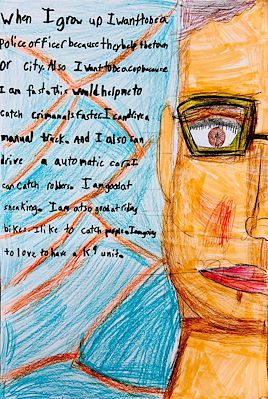 When I grow up I want to be a
Police officer because they help the town
or city. Also I want to be a cop because
I am fast. This would help me to
catch crimanals faster. I can drive a
manual truck. And I also can
drive a automatic car. I
can catch robbers. I am good at
sneaking. I am also good at riding
bikes. I like to catch people. I am going
to love to have a K9 unit.